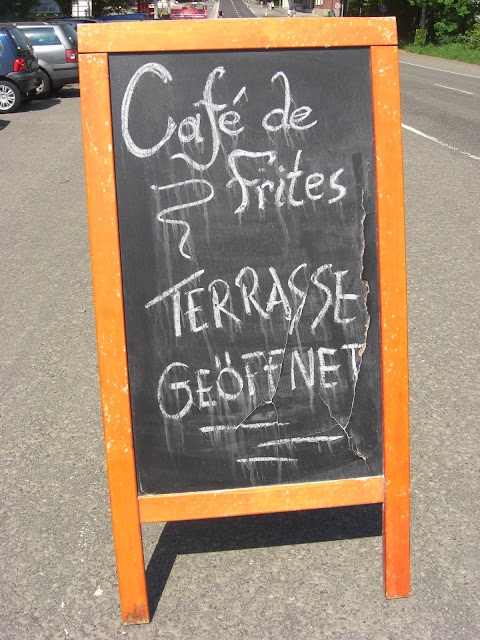 Café de
Frites
TERRASSE
GEÖFFNET